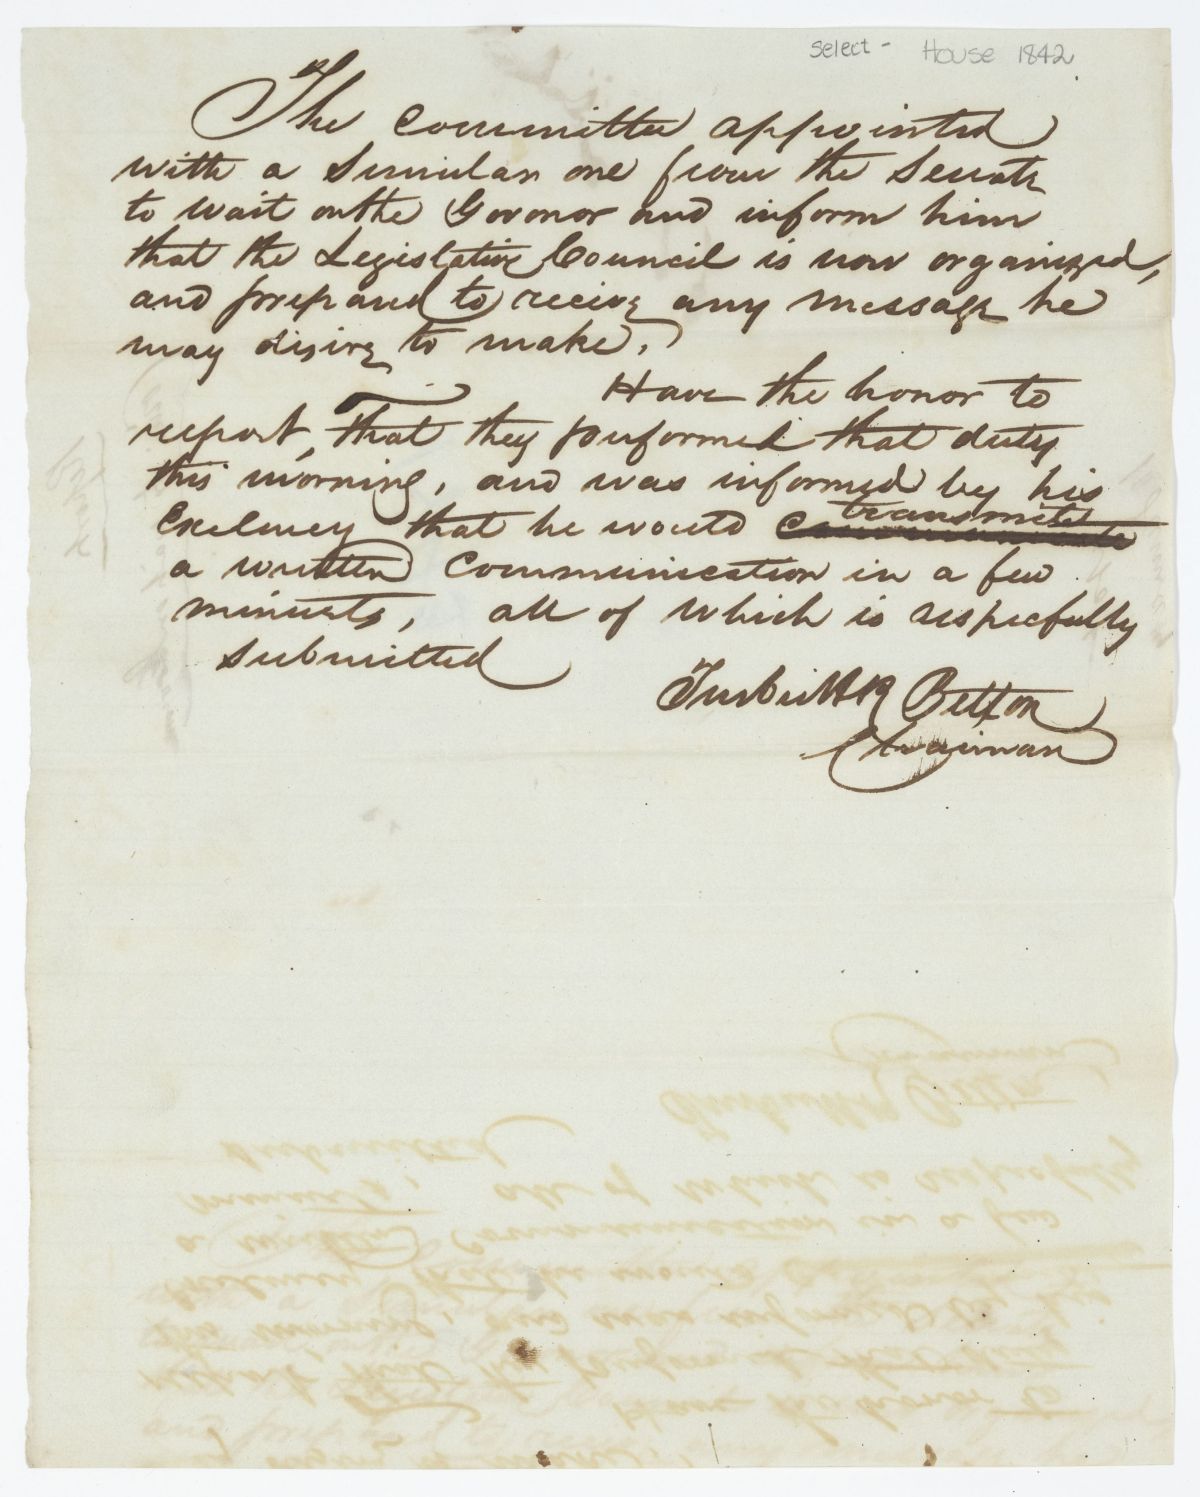 select - House 1842
The committee appointed
with a Similar one from the Senate
to wait on the Govonor and inform him
that the Legislative Council is now organized,
and prepared to recive any message he
may disire to make,
Have the honor to
report, that they performed that duty
this morning, and was informed by his
Exelency that he would communicate transmit
a written Communication in a few
minuets, all of which is respecfully
submitted
Turbutt R Betton
Chairman